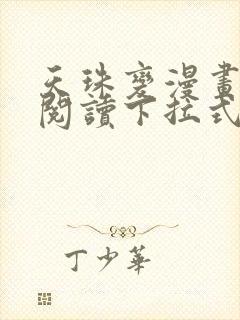 天珠變漫畫
閱讀下拉式
丁少華